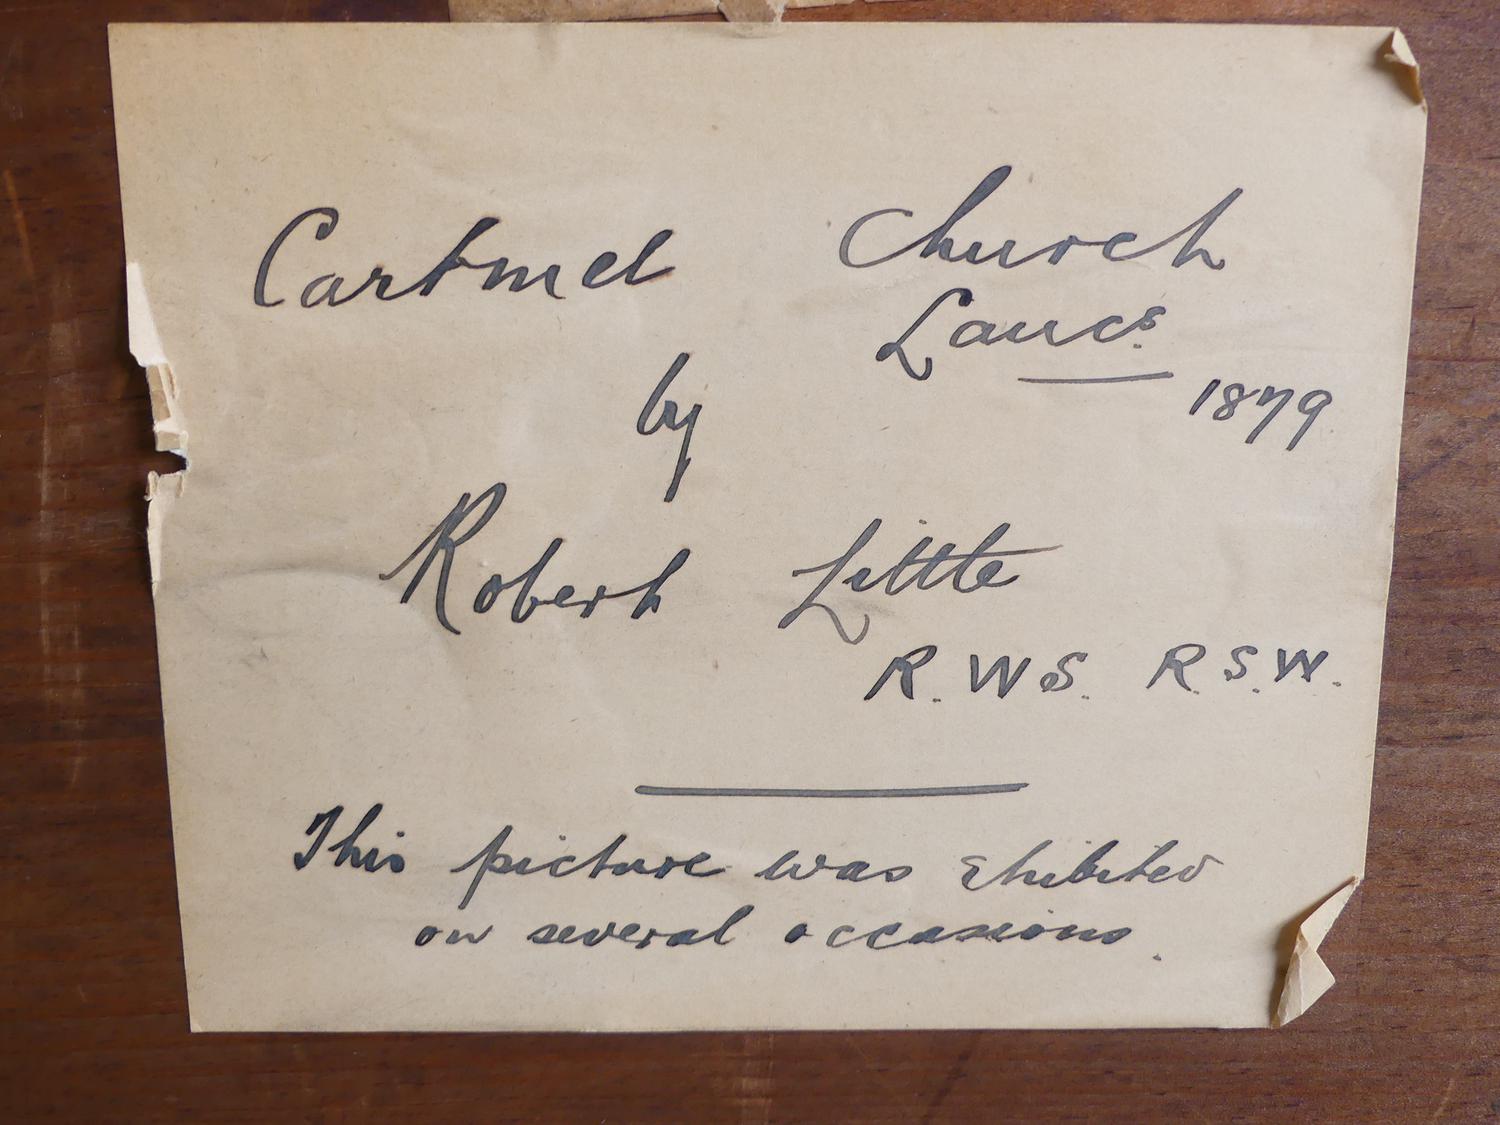 Cartmel Church
Lancs.
1879
by
Robert Little
R.W.S. R.S.W.
This picture was exhibited
on several occasions.